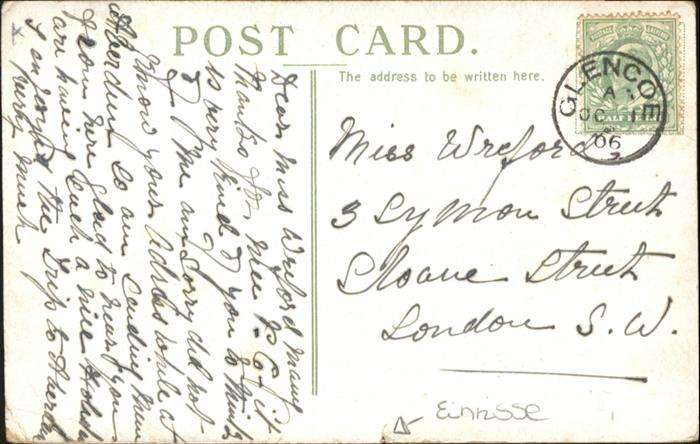 POST CARD.
The address to be written here.
POSTAGE REVENUE
HALF PENNY
GLENCOE
A
OC 1
06
Miss Wreford
3 Symon Street
Sloane Street
London S.W.
Einrisse
Dear Miss Wreford Many
thanks for nice P.C. it
is very kind of you to think
of me am sorry did not
know your address while at
Aberdeen so am sending from
Glencoe glad to hear you
are having such a nice Holiday
I enjoyed the Trip to Aberdeen
very much
x